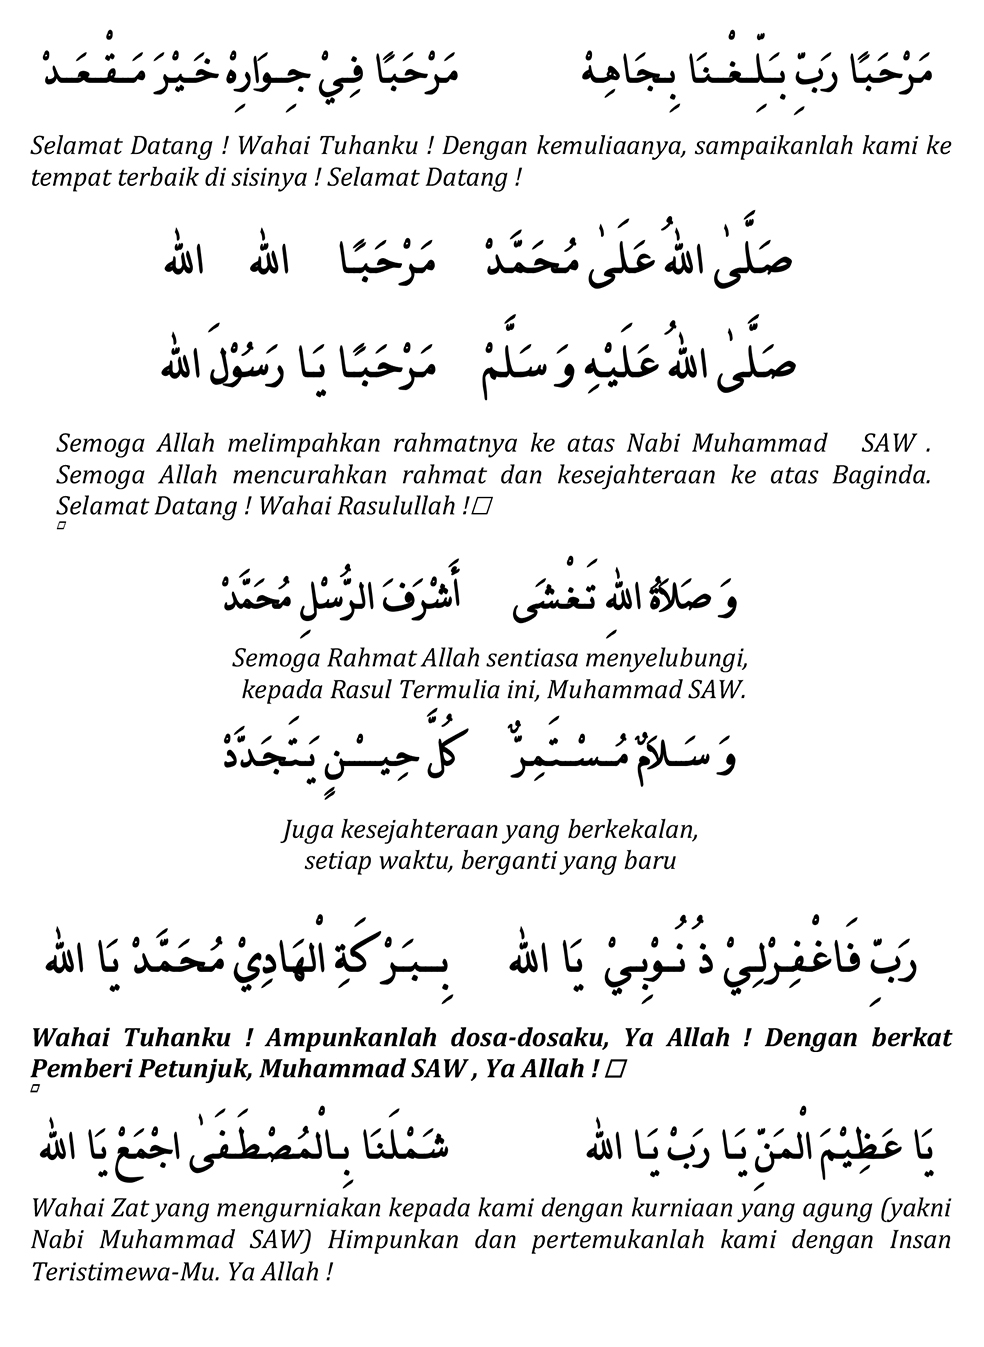 مَرْحَبًا رَبِّ بَلِّغْنَا بِجَاهِهْ مَرْحَبًا فِيْ جِوَارِهْ خَيْرَ مَقْعَدْ
Selamat Datang ! Wahai Tuhanku ! Dengan kemuliaanya, sampaikanlah kami ke
tempat terbaik di sisinya ! Selamat Datang !
صَلَّىٰ اللهُ عَلَىٰ مُحَمَّدْ مَرْحَبًا الله الله
صَلَّىٰ اللهُ عَلَيْهِ وَ سَلَّمْ مَرْحَبًا يَا رَسُوْلَ الله
Semoga Allah melimpahkan rahmatnya ke atas Nabi Muhammad SAW .
Semoga Allah mencurahkan rahmat dan kesejahteraan ke atas Baginda.
Selamat Datang ! Wahai Rasulullah !
وَ صَلَاةُ اللهِ تَغْشَى أَشْرَفَ الرُّسْلِ مُحَمَّدْ
Semoga Rahmat Allah sentiasa menyelubungi,
kepada Rasul Termulia ini, Muhammad SAW.
وَ سَلَامٌ مُسْتَمِرٌّ كُلَّ حِيْنٍ يَتَجَدَّدْ
Juga kesejahteraan yang berkekalan,
setiap waktu, berganti yang baru
رَبِّ فَاغْفِرْلِيْ ذُنُوْبِيْ يَا الله بِبَرْكَةِ الْهَادِيْ مُحَمَّدْ يَا الله
Wahai Tuhanku ! Ampunkanlah dosa-dosaku, Ya Allah ! Dengan berkat
Pemberi Petunjuk, Muhammad SAW , Ya Allah !
يَا عَظِيْمَ الْمَنِّ يَا رَبْ يَا الله شَمْلَنَا بِالْمُصْطَفَىٰ اجْمَعْ يَا الله
Wahai Zat yang mengurniakan kepada kami dengan kurniaan yang agung (yakni
Nabi Muhammad SAW) Himpunkan dan pertemukanlah kami dengan Insan
Teristimewa-Mu. Ya Allah !